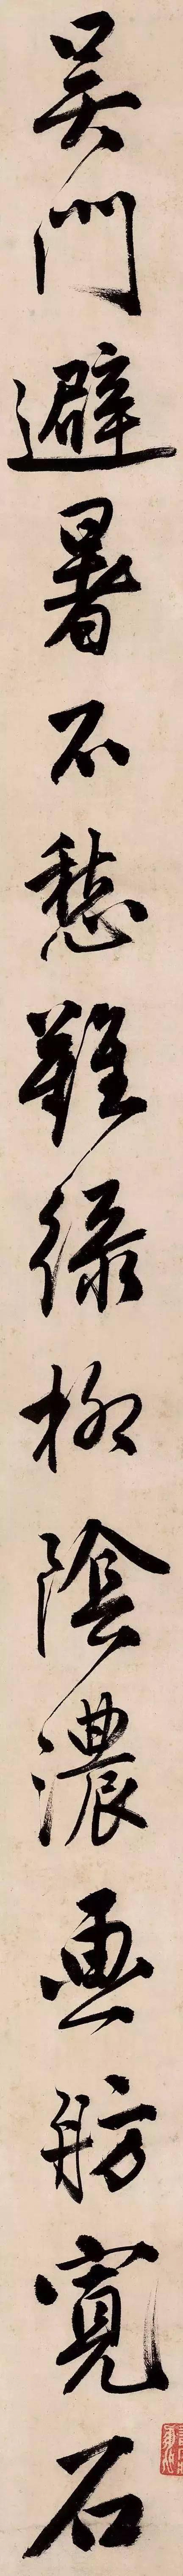 吴門避暑不愁難绿柳陰濃画舫寬石